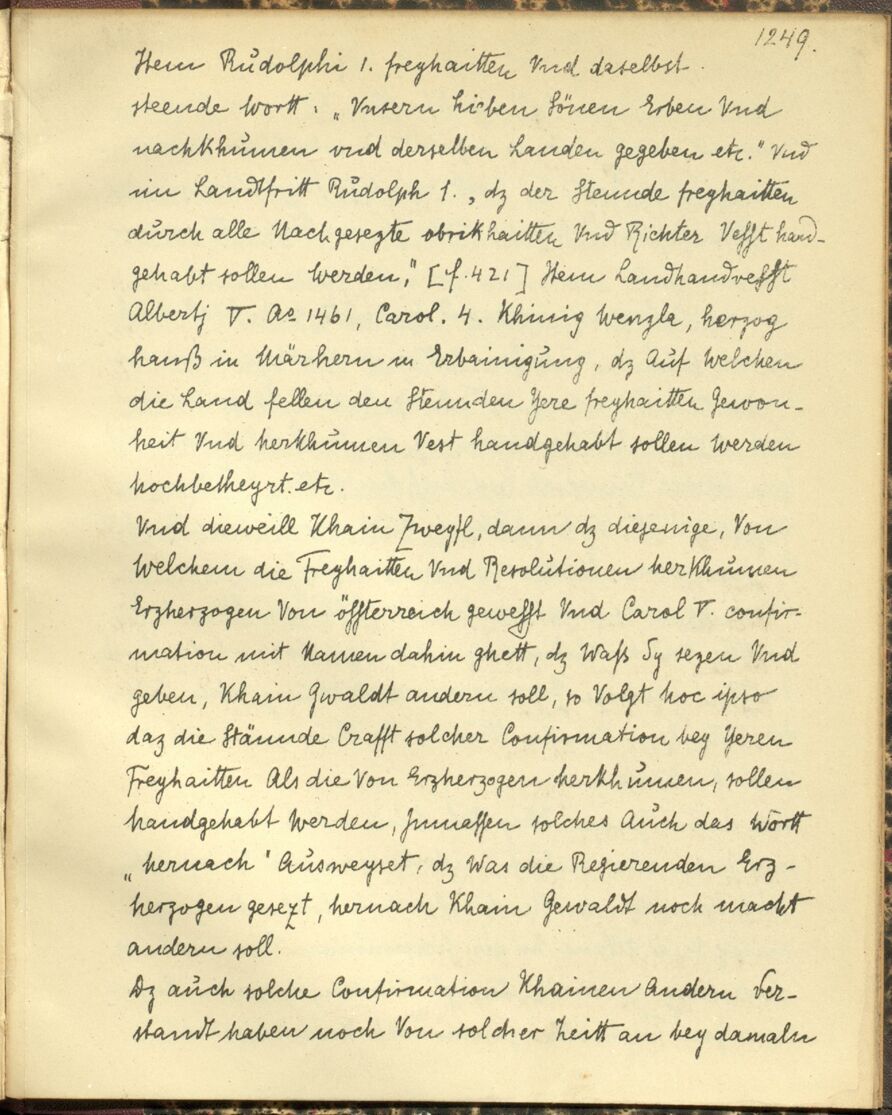 1249.
Item Rudolphi 1. freyhaitten Vnd daselbst
steende wortt: „Vnsern lieben Sönen Erben Vnd
nachKhumen vnd derselben Landen gegeben etc." Vnd
im Landtfritt Rudolph 1., dz der Stennde freyhaitten
durch alle Nachgesezte obrikhaitten Vnd Richter Vesst hand-
gehabt sollen werden," [f. 421] Item Landhandvesst
Albertj V. Ao 1461, Carol. 4. Khinig Wenzla, herzog
hanß in Märhern in Erbainigung, dz Auf Welchen
die Land fellen den Stennden Yere freyhaitten Gewon-
heit Vnd herkhumen Vest handgehabt sollen werden
hochbetheyrt. etc.
Vnd dieweill Khain Zweyfl, dann dz diejenige, Von
Welchem die Freyhaitten Vnd Resolutionen herKhumen
Erzherzogen Von össterreich gewesst Vnd Carol V. confir-
mation mit Namen dahin ghett, dz Waß Sy sezen Vnd
geben, Khain Gwaldt andern soll, so Volgt hoc ipso
daz die Stännde Crafft solcher Confirmation bey Yeren
Freyhaitten Als die Von Erzherzogen herkhumen, sollen
handgehabt Werden, Jnmassen solches Auch das Wortt
„hernach" Ausweyset, dz Was die Regierenden Erz-
herzogen gesezt, hernach Khain Gewaldt noch macht
andern soll.
Dz auch solche Confirmation Khainen Andern Ver-
standt haben noch Von solcher Zeitt an bey damaln